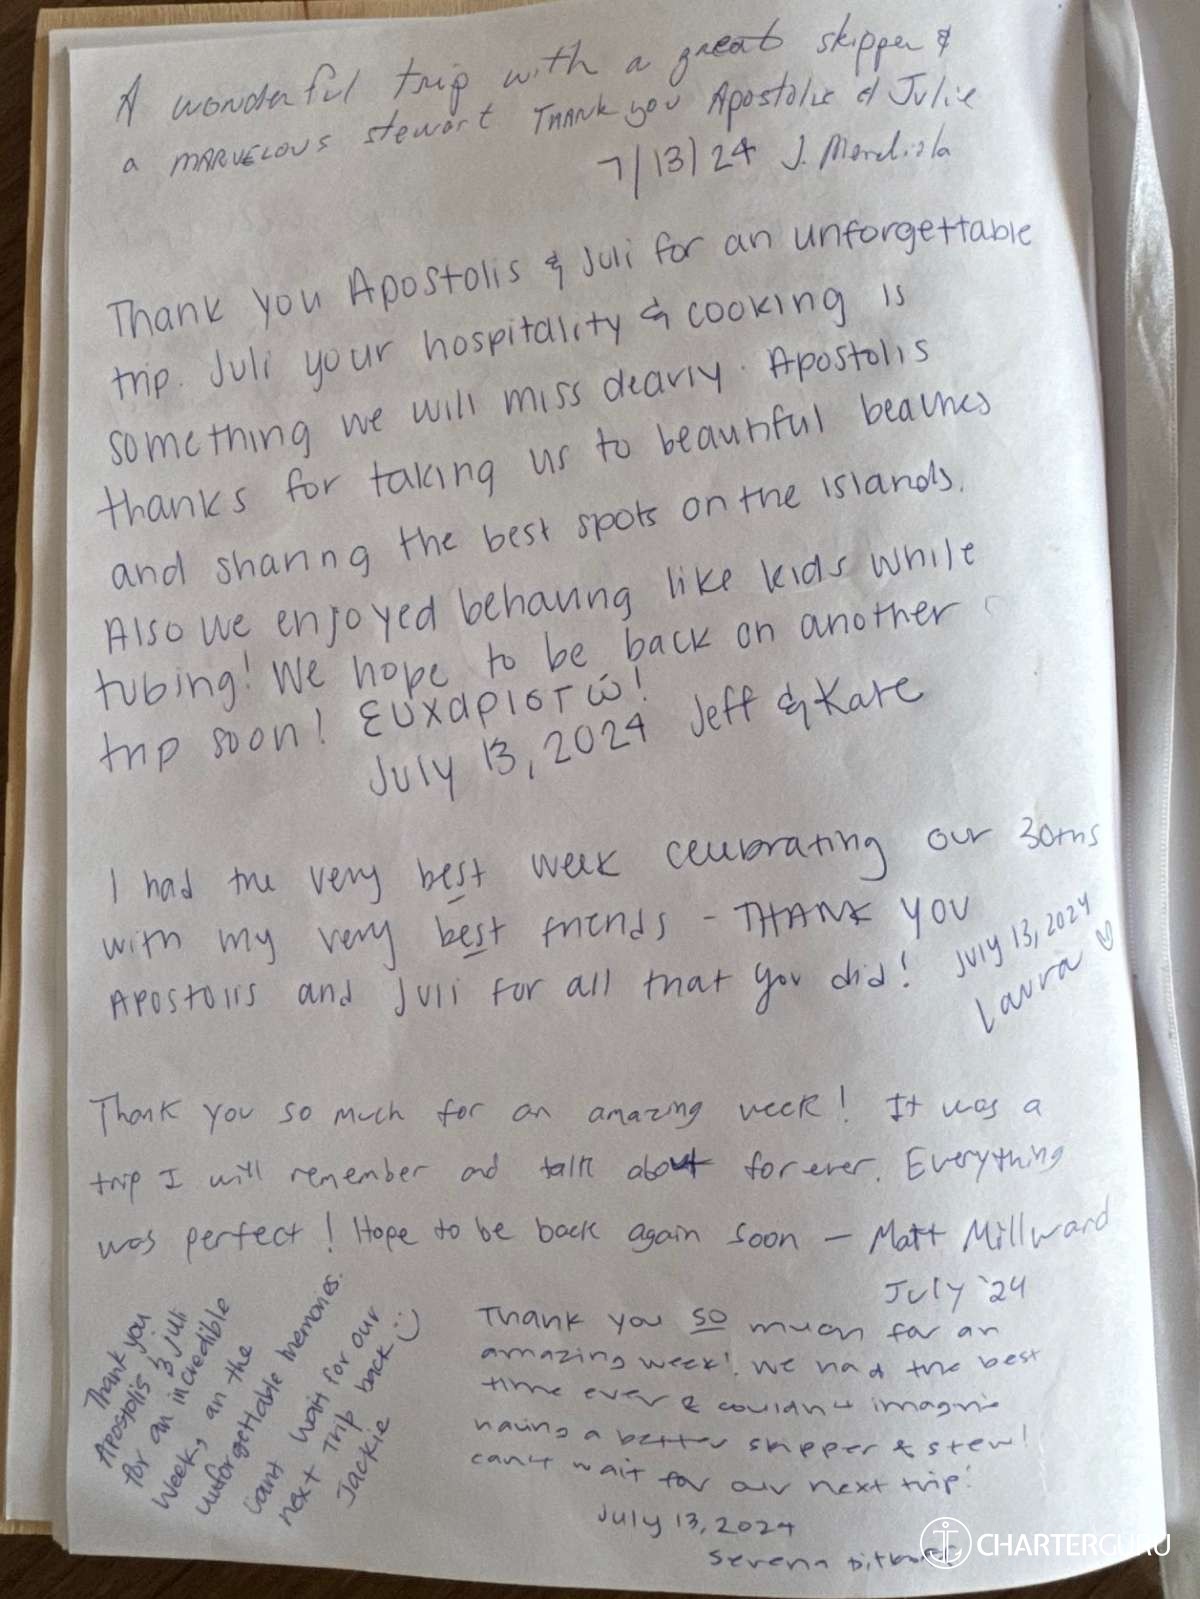 A wonderful trip with a great skipper &
a MARVELOUS stewart THANK you Apostolis & Julie
7/13/24 J. Mendiola
Thank you Apostolis & Juli for an unforgettable
trip. Juli your hospitality & cooking is
something we will miss dearly. Apostolis
thanks for taking us to beautiful beaches
and sharing the best spots on the islands.
Also we enjoyed behaving like kids while
tubing! We hope to be back on another
trip soon! Ευχαριστώ!
July 13, 2024 Jeff & Kate
I had the very best week celebrating our 30ths
with my very best friends - THANK YOU
Apostolis and Juli for all that you did! July 13, 2024
Laura ♡
Thank you so much for an amazing week! It was a
trip I will remember and talk about forever. Everything
was perfect! Hope to be back again soon - Matt Millward
July '24
Thank you
Apostolis & Juli
for an incredible
week, an the
unforgettable memories.
Cant wait for our
next trip back :)
Jackie
Thank you so much for an
amazing week! We had the best
time ever & couldn't imagine
having a better skipper & stew!
can't wait for our next trip!
July 13, 2024
Serena
CHARTERGURU